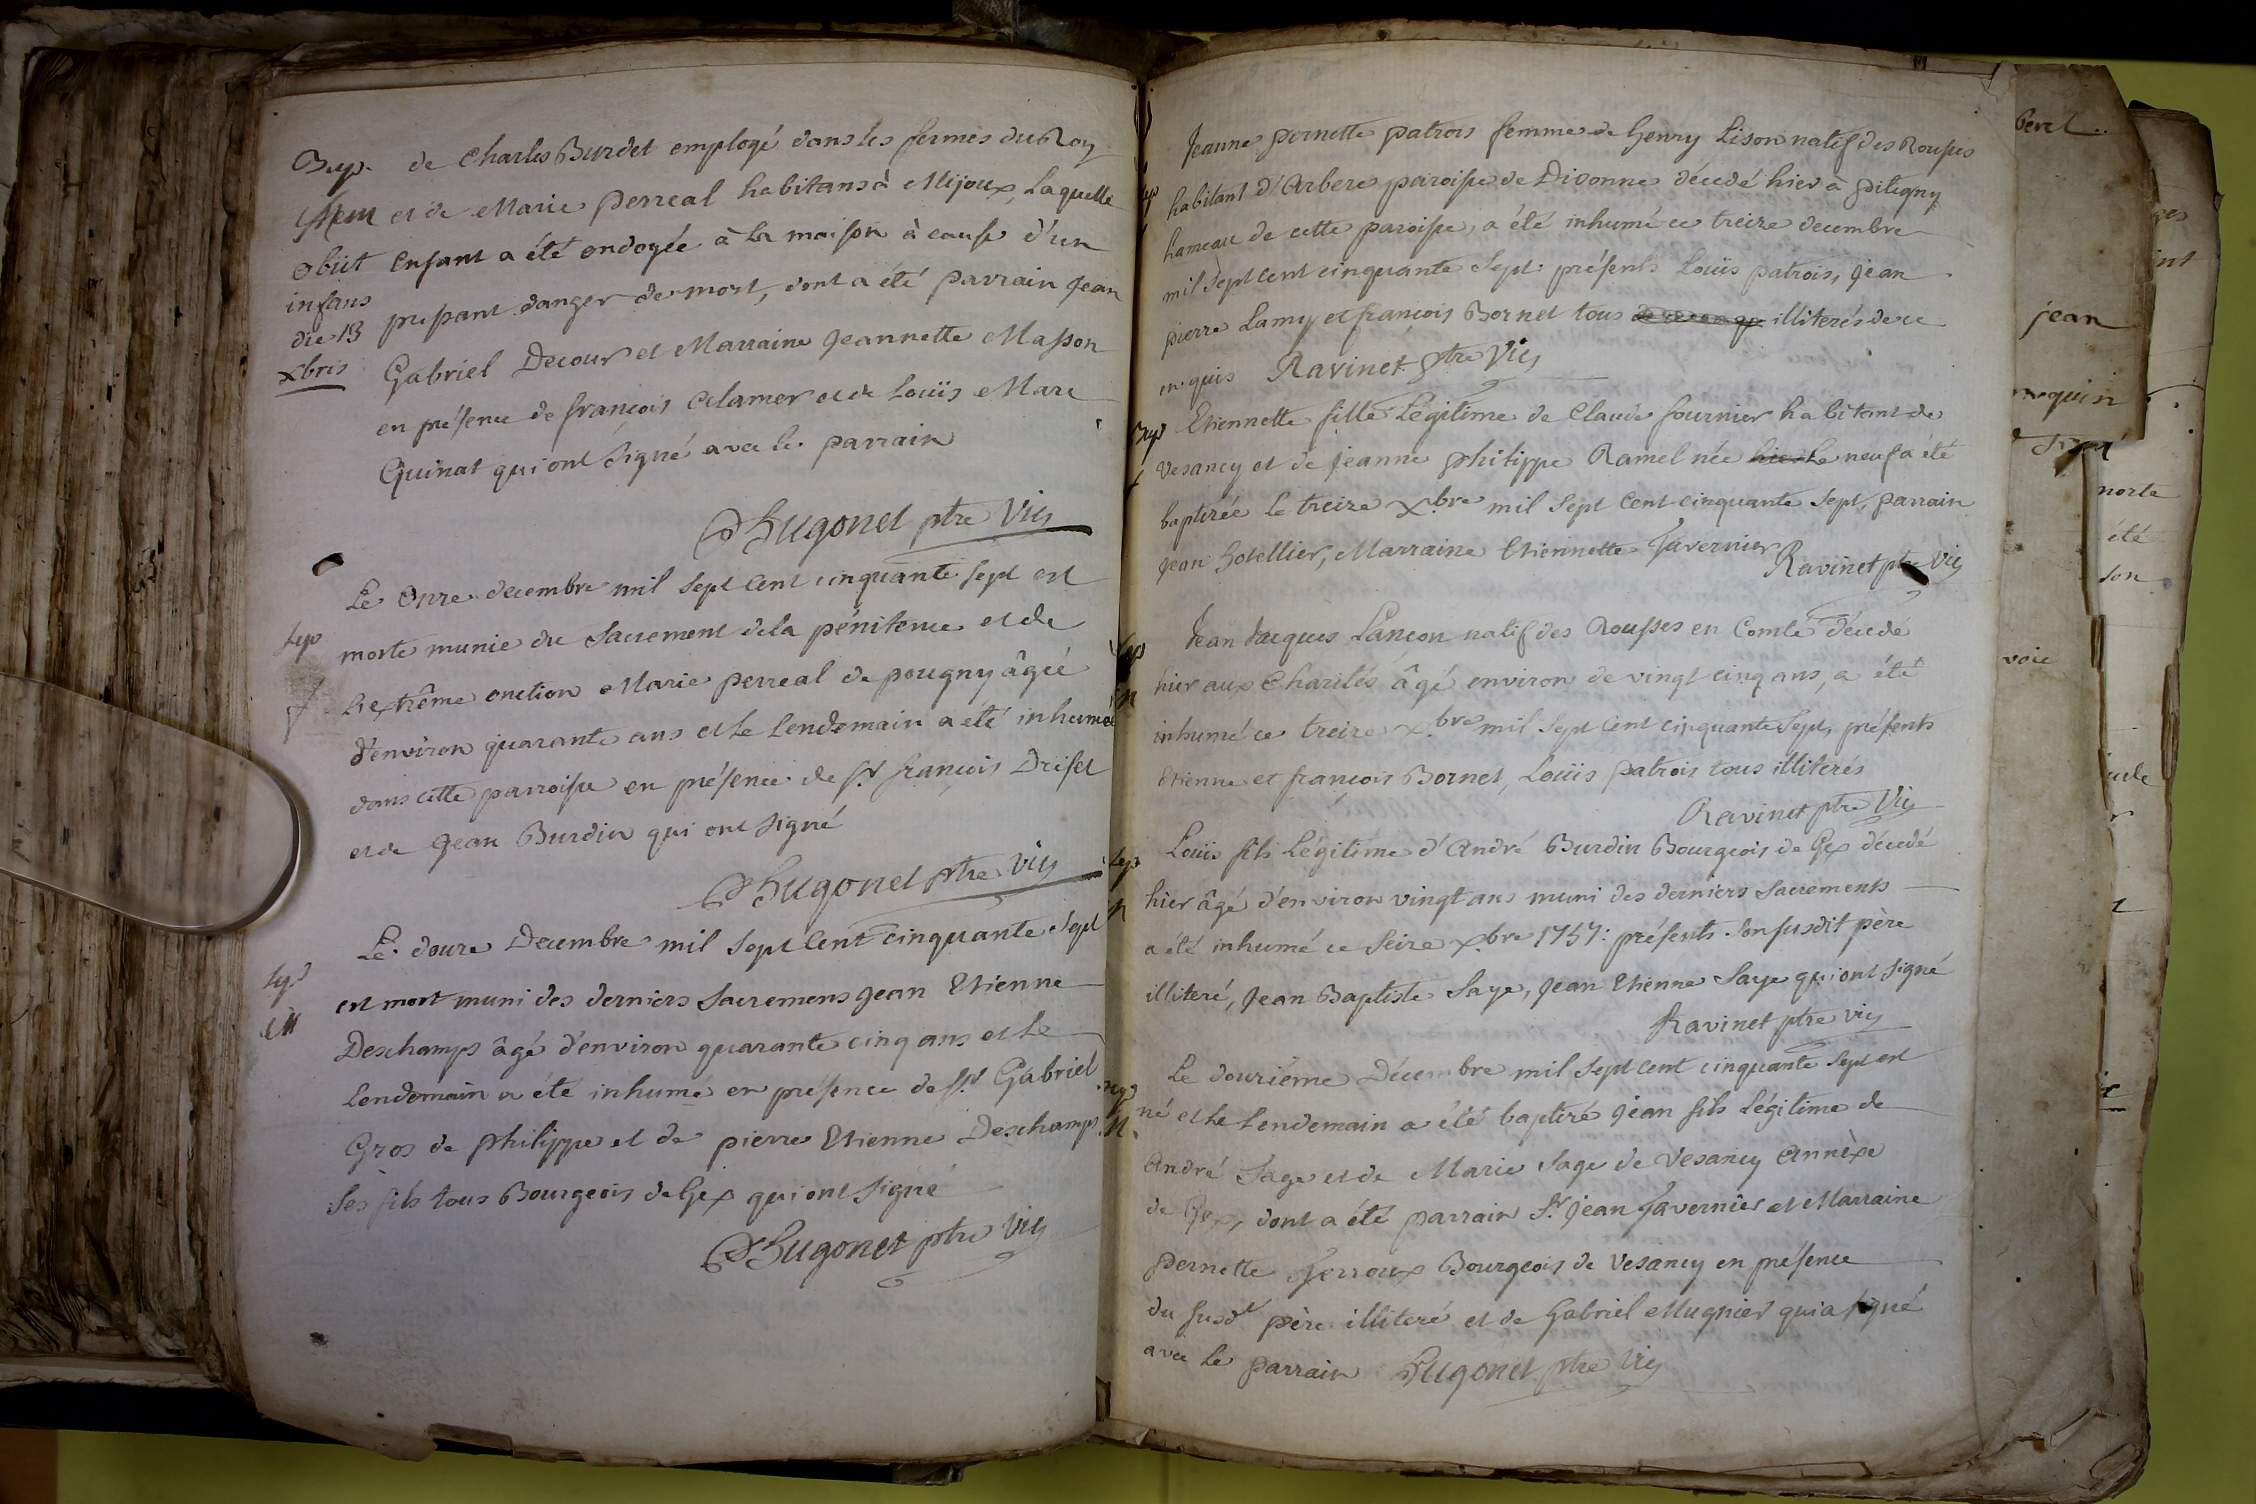 Bap. de Charles Burdet employé dans les fermes du Roy
et de Marie Perreal habitans à Mijoux, Laquelle
obiit Enfant a été ondoyée à La maison à cause d'un
infans
die 13 pressant danger de mort, dont a été parrain Jean
xbris Gabriel Decour et Marraine Jeannette Masson
en présence de françois Clamer et de Louïs Marc
Guinat qui ont signé avec le parrain
Hugonet ptre Vic
Sep Le Onze decembre mil sept Cent cinquante sept est
morte munie du Sacrement de la pénitence et de
L'extrême onction Marie Perreal de pougny âgée
d'environ quarante ans et le Lendemain a été inhumée
dans cette parroisse en présence de Sr. françois Driset
et de Jean Burdin qui ont signé
Hugonet ptre Vic
Sep Le douze Decembre mil sept Cent Cinquante sept
est mort muni des derniers Sacremens Jean Etienne
Deschamps âgé d'environ quarante cinq ans et Le
Lendemain a été inhumé en présence de Sr. Gabriel
Gros de Philippe et de pierre Etienne Deschamps
ses fils tous Bourgeois de Gex qui ont signé
Hugonet ptre Vic
Jeanne pernette patrois femme de Henry Lison natif des Rousses
habitant d'Arbere paroisse de Divonne décedé hier à pitegny
hameau de cette paroisse, a été inhumé ce treize decembre
mil sept cent cinquante Sept: présents Loüis patrois, Jean
pierre Lamy et françois Bornet tous illiterés de ce
enquis Ravinet ptre Vic
Bap Etiennette fille Légitime de Claude fournier habitant de
Vesancy et de Jeanne philippe Ramel née hier Le neuf a été
baptizée le treize xbre mil Sept Cent cinquante Sept, parrain
Jean hotellier, Marraine Etiennette Tavernier
Ravinet ptre Vic
Sep Jean Jacques Lançon natif des Rousses en Comté décedé
hier aux Charités âgé environ de vingt cinq ans, a été
inhumé ce treize xbre mil Sept Cent cinquante Sept, présents
Etienne et françois Bornet, Loüis patrois tous illiterés
Ravinet ptre Vic
Sep Loüis fils Légitime d'André Burdin Bourgeois de Gex décedé
hier âgé d'environ vingt ans muni des derniers Sacrements
a été inhumé ce Seize xbre 1757: présents son susdit père
illiteré, Jean Baptiste Saye, Jean Etienne Saye qui ont signé
Ravinet ptre vic
Le douzième Décembre mil sept cent cinquante Sept est
né et Le Lendemain a été baptizé Jean fils Légitime de
André Sage et de Marie Sage de Vesancy Annèxe
de Gex, dont a été parrain Sr. Jean Tavernier et Marraine
Pernette Perroux Bourgeois de Vesancy en présence
du susd. père illiteré et de Gabriel Mugnier qui a signé
avec Le parrain Hugonet ptre Vic
jean
voie
norte
été
son